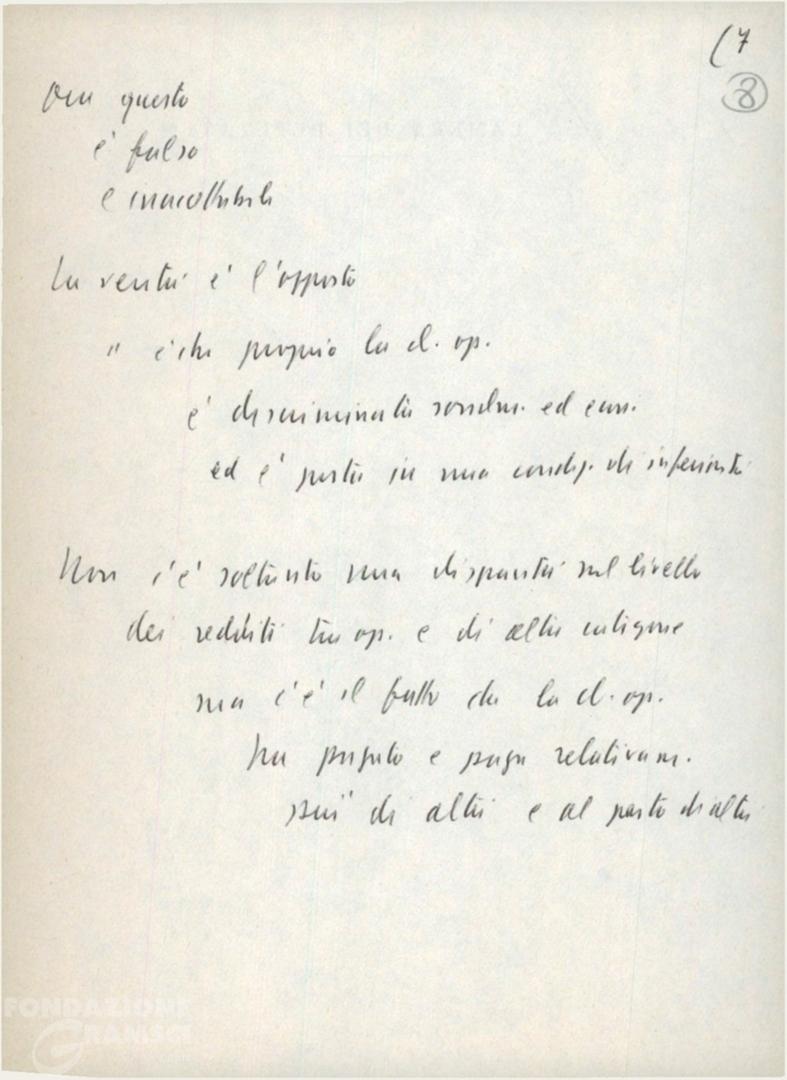 (7
8
Ora questo
è falso
e inaccettabile
La verità è l'opposto
" è che proprio la cl. op.
è discriminata socialm. ed econ.
ed è posta in una condiz. di inferiorità
Non c'è soltanto una disparità nel livello
dei redditi tra op. e di altre categorie
ma c'è il fatto che la cl. op.
ha pagato e paga relativam.
più di altri e al posto di altri
FONDAZIONE
GRAMSCI